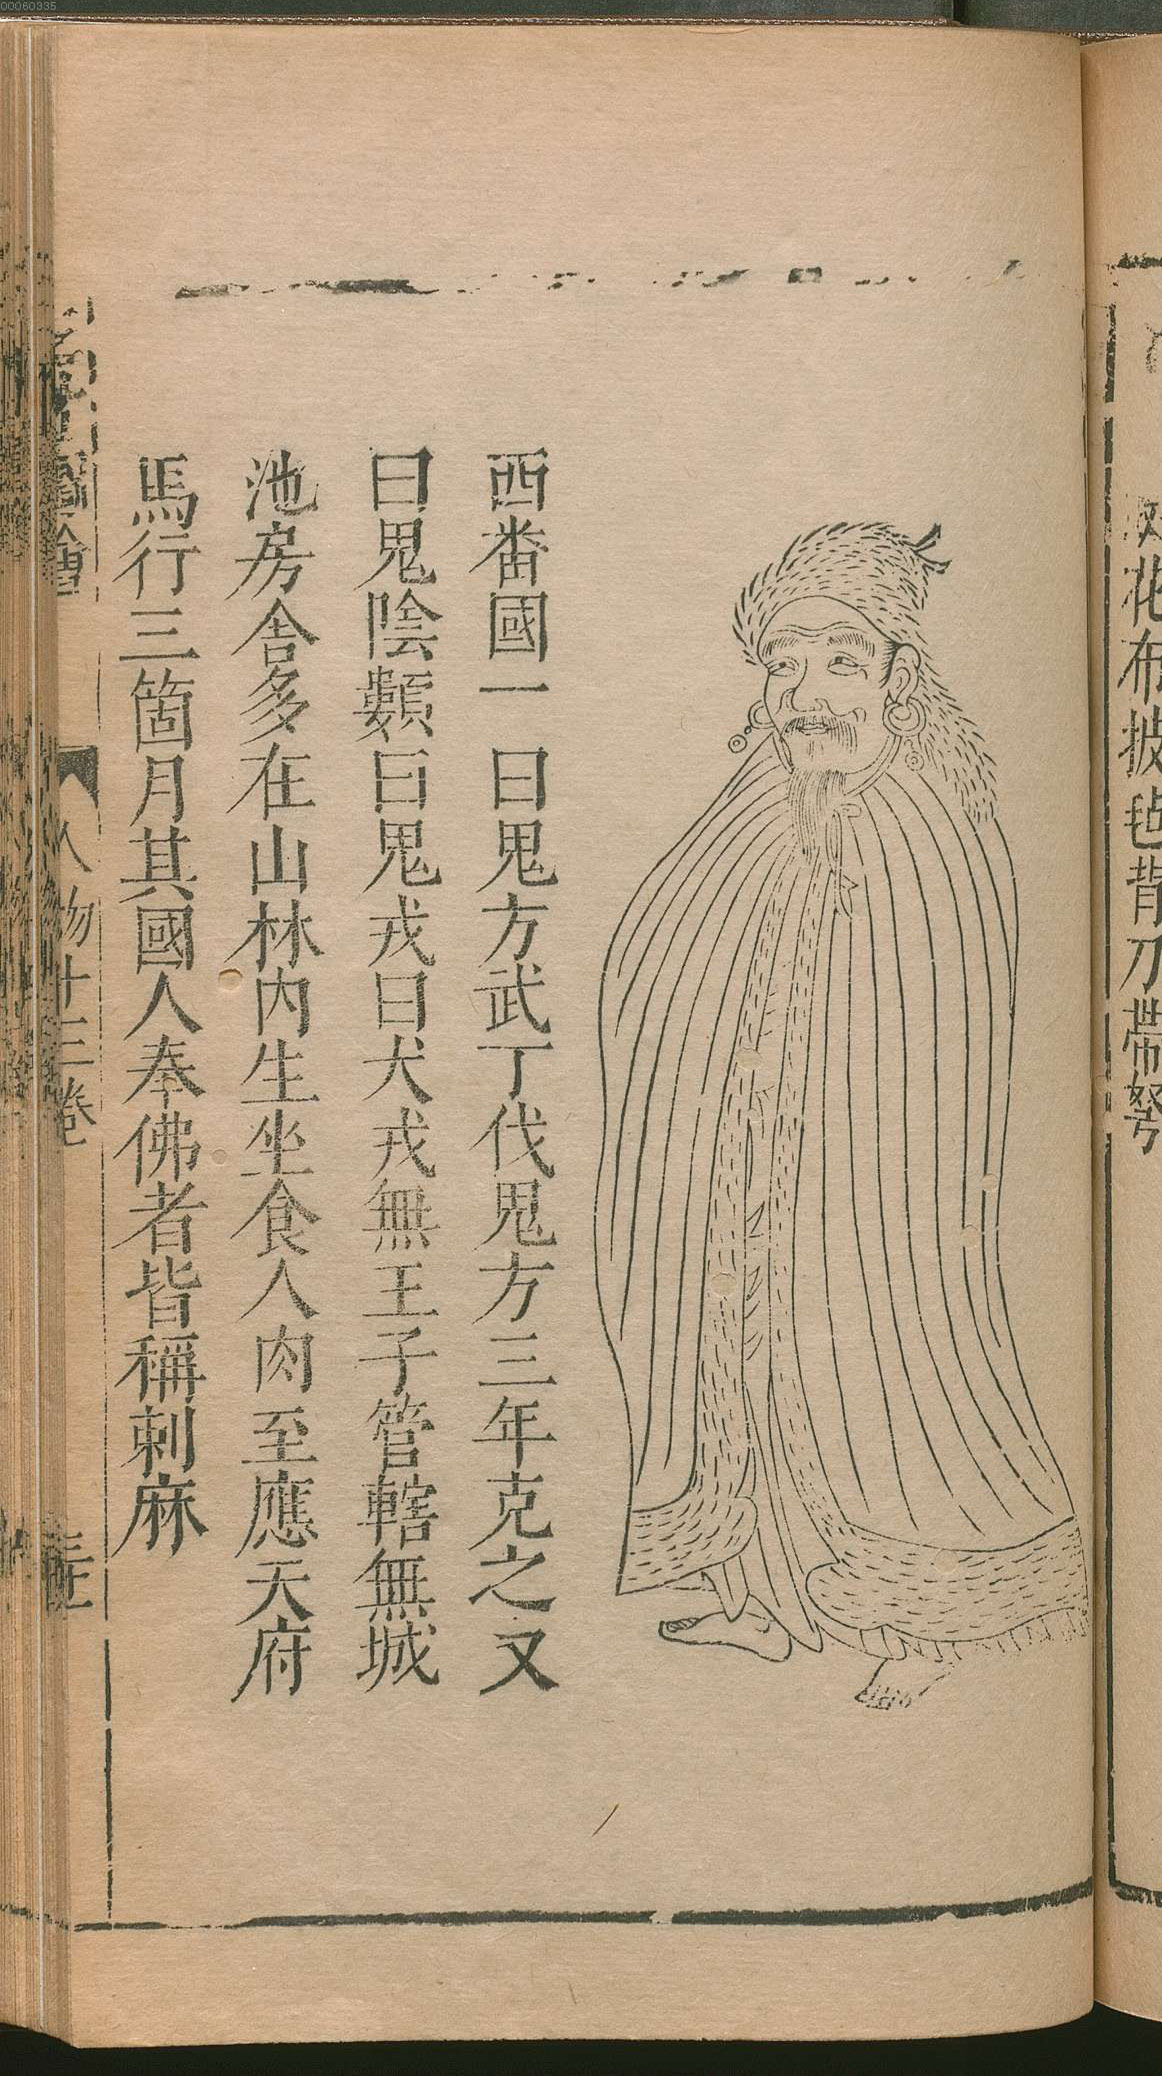 00060335
欵花布披毡背刀帶弩
西番國一曰鬼方武丁伐鬼方三年克之又
曰鬼陰類曰鬼戎曰犬戎無王子管轄無城
池房舍多在山林內生坐食人肉至應天府
馬行三箇月其國人奉佛者皆稱剌麻
圖會
人物十三卷